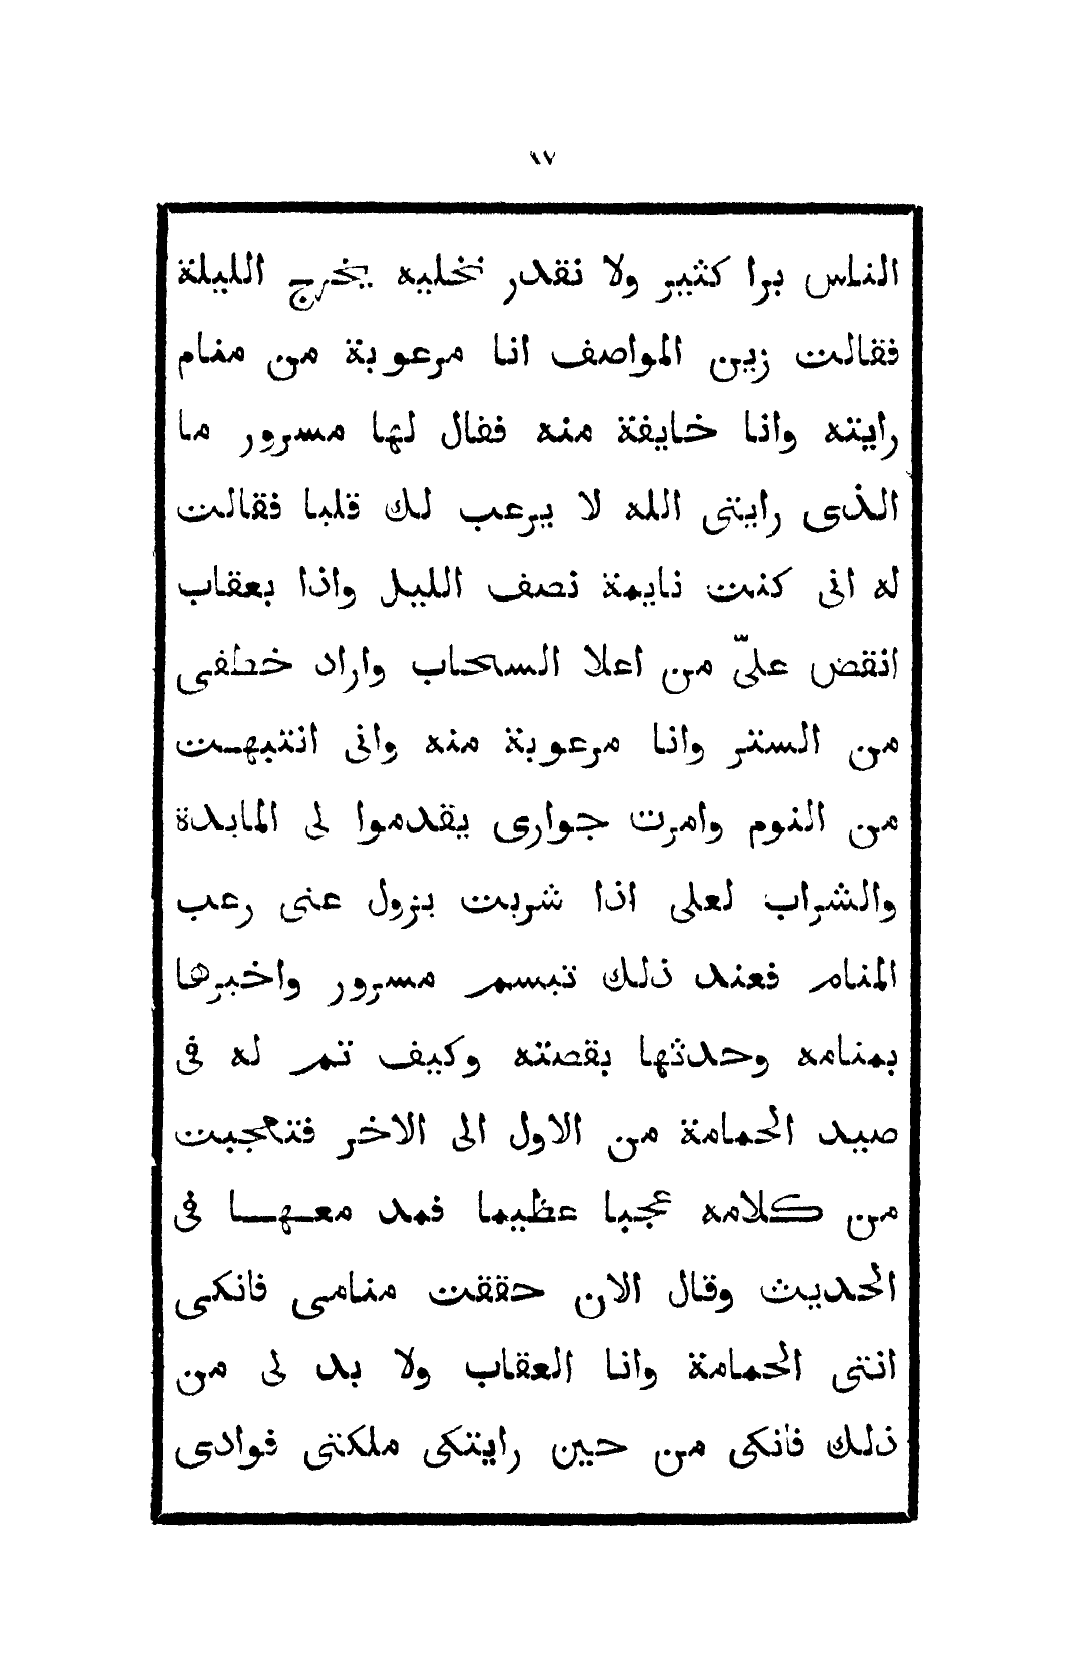 ١٧
الناس برا كثير ولا نقدر نخليه يخرج الليلة
فقالت زين المواصف انا مرعوبة من منام
رايته وانا خايفة منه فقال لها مسرور ما
الذى رايتى الله لا يرعب لك قلبا فقالت
له انى كنت نايمة نصف الليل واذا بعقاب
انقض علىّ من اعلا السحاب واراد خطفى
من الستر وانا مرعوبة منه وانى انتبهت
من النوم وامرت جوارى يقدموا لى المايدة
والشراب لعلى اذا شربت يزول عنى رعب
المنام فعند ذلك تبسم مسرور واخبرها
بمنامه وحدثها بقصته وكيف تم له فى
صيد الحمامة من الاول الى الاخر فتعجبت
من كلامه عجبا عظيما فمد معها فى
الحديث وقال الان حققت منامى فانكى
انتى الحمامة وانا العقاب ولا بد لى من
ذلك فانكى من حين رايتكى ملكتى فوادى